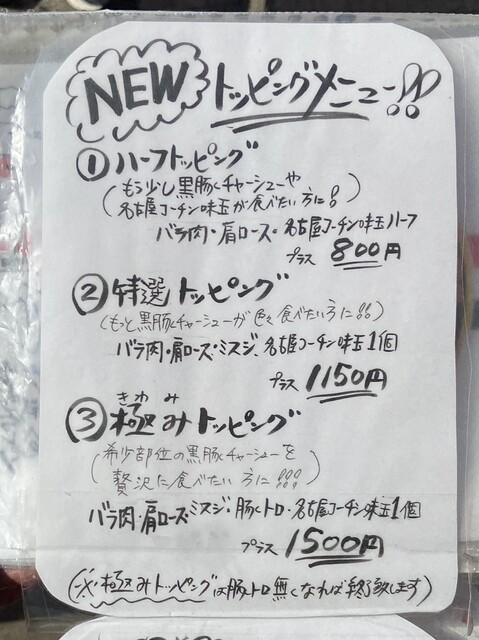 NEW トッピングメニュー!!
①ハーフトッピング
(もう少し黒豚チャーシューや
名古屋コーチン味玉が食べたい方に!)
バラ肉・肩ロース・名古屋コーチン味玉ハーフ
プラス 800円
②特選トッピング
(もっと黒豚チャーシューが色々食べたい方に!!)
バラ肉・肩ロース・ミスジ、名古屋コーチン味玉1個
プラス 1150円
きわみ
③極みトッピング
(希少部位の黒豚チャーシューを
贅沢に食べたい方に!!!)
バラ肉・肩ロース・ミスジ・豚トロ・名古屋コーチン味玉1個
プラス 1500円
(※極みトッピングは豚トロ無くなれば終了致します)